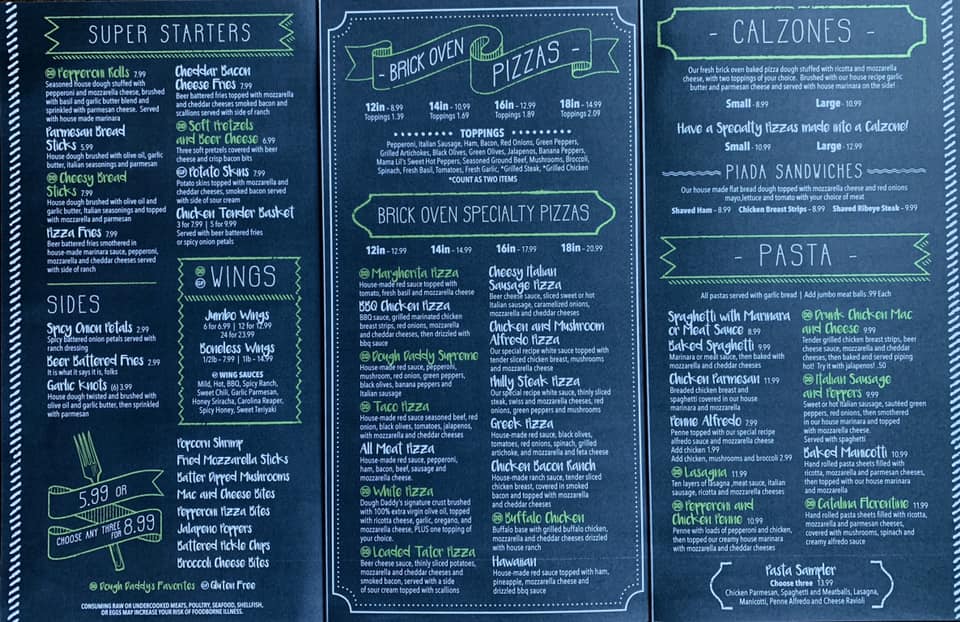 SUPER STARTERS
DD Pepperoni Rolls 7.99
Seasoned house dough stuffed with
pepperoni and mozzarella cheese, brushed
with basil and garlic butter blend and
sprinkled with parmesan cheese. Served
with house made marinara
Parmesan Bread
Sticks 5.99
House dough brushed with olive oil, garlic
butter, italian seasonings and parmesan
DD Cheesy Bread
Sticks 7.99
House dough brushed with olive oil and
garlic butter, Italian seasonings and topped
with mozzarella and parmesan
Pizza Fries 7.99
Beer battered fries smothered in
house-made marinara sauce, pepperoni,
mozzarella and cheddar cheeses served
with side of ranch
Cheddar Bacon
Cheese Fries 7.99
Beer battered fries topped with mozzarella
and cheddar cheeses smoked bacon and
scallions served with side of ranch
DD Soft Pretzels
and Beer Cheese 6.99
Three soft pretzels covered with beer
cheese and crisp bacon bits
GF Potato Skins 7.99
Potato skins topped with mozzarella and
cheddar cheeses, smoked bacon served
with side of sour cream
Chicken Tender Basket
3 for 7.99 | 5 for 9.99
Served with beer battered fries
or spicy onion petals
SIDES
Spicy Onion Petals 2.99
Spicy battered onion petals served with
ranch dressing
Beer Battered Fries 2.99
It is what it says it is, folks
Garlic Knots (6) 3.99
House dough twisted and brushed with
olive oil and garlic butter, then sprinkled
with parmesan
DD GF WINGS
Jumbo Wings
6 for 6.99 | 12 for 12.99
24 for 23.99
Boneless Wings
1/2lb - 7.99 | 1lb - 14.99
GF WING SAUCES
Mild, Hot, BBQ, Spicy Ranch,
Sweet Chili, Garlic Parmesan,
Honey Sriracha, Carolina Reaper,
Spicy Honey, Sweet Teriyaki
5.99 OR
CHOOSE ANY THREE FOR 8.99
Popcorn Shrimp
Fried Mozzarella Sticks
Batter Dipped Mushrooms
Mac and Cheese Bites
Pepperoni Pizza Bites
Jalapeno Poppers
Battered Pickle Chips
Broccoli Cheese Bites
DD Dough Daddys Favorites GF Gluten Free
CONSUMING RAW OR UNDERCOOKED MEATS, POULTRY, SEAFOOD, SHELLFISH,
OR EGGS MAY INCREASE YOUR RISK OF FOODBORNE ILLNESS.
- BRICK OVEN PIZZAS -
12in - 8.99 14in - 10.99 16in - 12.99 18in - 14.99
Toppings 1.39 Toppings 1.69 Toppings 1.89 Toppings 2.09
TOPPINGS
Pepperoni, Italian Sausage, Ham, Bacon, Red Onions, Green Peppers,
Grilled Artichokes, Black Olives, Green Olives, Jalapenos, Banana Peppers,
Mama Lil's Sweet Hot Peppers, Seasoned Ground Beef, Mushrooms, Broccoli,
Spinach, Fresh Basil, Tomatoes, Fresh Garlic, *Grilled Steak, *Grilled Chicken
*COUNT AS TWO ITEMS
BRICK OVEN SPECIALTY PIZZAS
12in - 12.99 14in - 14.99 16in - 17.99 18in - 20.99
DD Margherita Pizza
House-made red sauce topped with
tomato, fresh basil and mozzarella cheese
BBQ Chicken Pizza
BBQ sauce, grilled marinated chicken
breast strips, red onions, mozzarella
and cheddar cheeses, then drizzled with
bbq sauce
DD Dough Daddy Supreme
House-made red sauce, pepperoni,
mushroom, red onion, green peppers,
black olives, banana peppers and
Italian sausage
DD Taco Pizza
House-made red sauce seasoned beef, red
onion, black olives, tomatoes, jalapenos,
with mozzarella and cheddar cheeses
All Meat Pizza
House-made red sauce, pepperoni,
ham, bacon, beef, sausage and
mozzarella cheese.
DD White Pizza
Dough Daddy's signature crust brushed
with 100% extra virgin olive oil, topped
with ricotta cheese, garlic, oregano, and
mozzarella cheese, PLUS one topping of
your choice.
DD Loaded Tator Pizza
Beer cheese sauce, thinly sliced potatoes,
mozzarella and cheddar cheeses and
smoked bacon, served with a side
of sour cream topped with scallions
Cheesy Italian
Sausage Pizza
Beer cheese sauce, sliced sweet or hot
Italian sausage, caramelized onions,
mozzarella and cheddar cheeses
Chicken and Mushroom
Alfredo Pizza
Our special recipe white sauce topped with
tender sliced chicken breast, mushrooms,
and mozzarella cheese
Philly Steak Pizza
Our special recipe white sauce, thinly sliced
steak, swiss and mozzarella cheeses, red
onions, green peppers and mushrooms
Greek Pizza
House-made red sauce, black olives,
tomatoes, red onions, spinach, grilled
artichoke, mozzarella and feta cheese
Chicken Bacon Ranch
House-made ranch sauce, tender sliced
chicken breast, covered in smoked
bacon and topped with mozzarella
and cheddar cheeses
DD Buffalo Chicken
Buffalo base with grilled buffalo chicken,
mozzarella and cheddar cheeses drizzled
with house ranch
Hawaiian
House-made red sauce topped with ham,
pineapple, mozzarella cheese and
drizzled bbq sauce
- CALZONES -
Our fresh brick oven baked pizza dough stuffed with ricotta and mozzarella
cheese, with two toppings of your choice. Brushed with our house recipe garlic
butter and parmesan cheese and served with house marinara on the side!
Small - 8.99 Large - 10.99
Have a Specialty Pizzas made into a Calzone!
Small - 10.99 Large - 12.99
PIADA SANDWICHES
Our house made flat bread dough topped with mozzarella cheese and red onions
mayo,lettuce and tomato with your choice of meat
Shaved Ham - 8.99 Chicken Breast Strips - 8.99 Shaved Ribeye Steak - 9.99
- PASTA -
All pastas served with garlic bread | Add jumbo meat balls .99 Each
Spaghetti with Marinara
or Meat Sauce 8.99
Baked Spaghetti 9.99
Marinara or meat sauce, then baked with
mozzarella and cheddar cheeses
Chicken Parmesan 11.99
Breaded chicken breast and
spaghetti covered in our house
marinara and mozzarella
Penne Alfredo 7.99
Penne topped with our special recipe
alfredo sauce and mozzarella cheese
Add chicken 1.99
Add chicken, mushrooms and broccoli 2.99
DD Lasagna 11.99
Ten layers of lasagna ,meat sauce, italian
sausage, ricotta and mozzarella cheeses
DD Pepperoni and
Chicken Penne 10.99
Penne with loads of pepperoni and chicken,
then topped our creamy house marinara
with mozzarella and cheddar cheeses
DD Drunk Chicken Mac
and Cheese 9.99
Tender grilled chicken breast strips, beer
cheese sauce, mozzarella and cheddar
cheeses, then baked and served piping
hot! Try it with jalapenos! .50
DD Italian Sausage
and Peppers 9.99
Sweet or hot Italian sausage, sautéed green
peppers, red onions, then smothered
in our house marinara and topped
with mozzarella cheese.
Served with spaghetti
Baked Manicotti 10.99
Hand rolled pasta sheets filled with
ricotta, mozzarella and parmesan cheeses,
then topped with our house marinara
and mozzarella
DD Catalina Florentine 11.99
Hand rolled pasta sheets filled with ricotta,
mozzarella and parmesan cheeses,
covered with mushrooms, spinach and
creamy alfredo sauce
Pasta Sampler
Choose three 13.99
Chicken Parmesan, Spaghetti and Meatballs, Lasagna,
Manicotti, Penne Alfredo and Cheese Ravioli